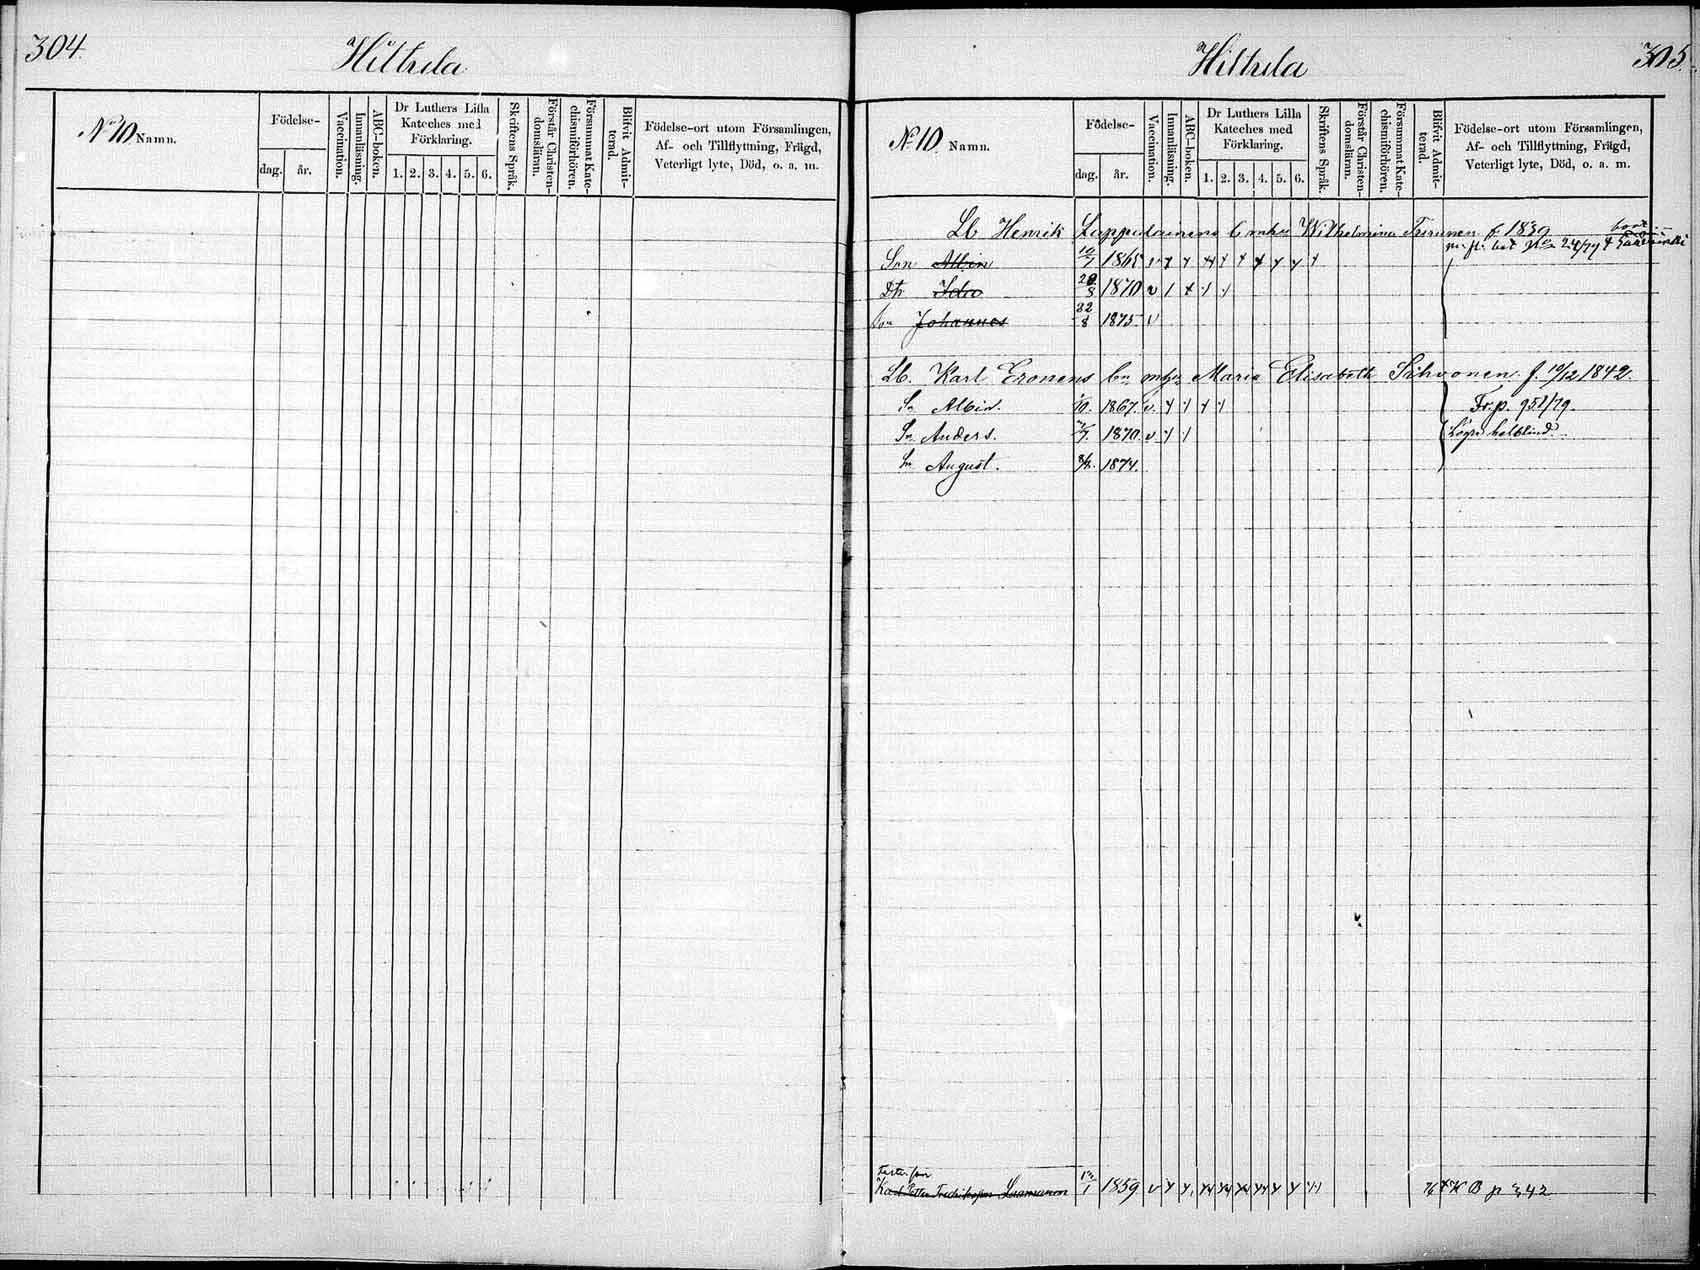 304.
Hiltula
No 10 Namn.
Födelse-
dag.
år.
Vaccination.
Innanläsning.
ABC-boken.
Dr Luthers Lilla
Kateches med
Förklaring.
1. 2. 3. 4. 5. 6.
Skriftens Språk.
Förstår Christen-
domsläran.
Försummat Kate-
chismiförhören.
Blifvit Admit-
terad.
Födelse-ort utom Församlingen,
Af- och Tillflyttning, Frägd,
Veterligt lyte, Död, o. a. m.
Hiltula
305.
No 10 Namn.
Födelse-
dag.
år.
Vaccination.
Innanläsning.
ABC-boken.
Dr Luthers Lilla
Kateches med
Förklaring.
1. 2. 3. 4. 5. 6.
Skriftens Språk.
Förstår Christen-
domsläran.
Försummat Kate-
chismiförhören.
Blifvit Admit-
terad.
Födelse-ort utom Församlingen,
Af- och Tillflyttning, Frägd,
Veterligt lyte, Död, o. a. m.
Lb Henrik Lappalainens Wilhelmina f 1839
Son Albin 1865
Dtr Ida 1870
Son Johannes 22/8 1875 v
Lb. Karl Eronens Maria Elisabeth Sihvonen f. 19/12 1842.
Sn Albin. 1867. v Fr. p. 952/79.
Sn Anders. 1870. v halblind.
Sn August. 1874.
Karl Petter Fredrikson Laamanen 1859 v K B p 342